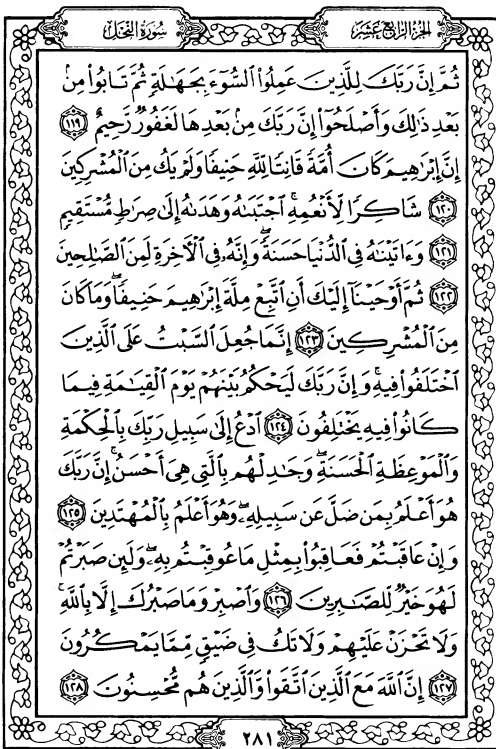 سُورَةُ النَّحْلِ
الجُزْءُ الرَّابِعَ عَشَرَ
ثُمَّ إِنَّ رَبَّكَ لِلَّذِينَ عَمِلُوا۟ ٱلسُّوٓءَ بِجَهَٰلَةٍۢ ثُمَّ تَابُوا۟ مِنۢ
بَعْدِ ذَٰلِكَ وَأَصْلَحُوٓا۟ إِنَّ رَبَّكَ مِنۢ بَعْدِهَا لَغَفُورٌۭ رَّحِيمٌ ١١٩
إِنَّ إِبْرَٰهِيمَ كَانَ أُمَّةًۭ قَانِتًۭا لِّلَّهِ حَنِيفًۭا وَلَمْ يَكُ مِنَ ٱلْمُشْرِكِينَ
١٢٠ شَاكِرًۭا لِّأَنْعُمِهِ ۚ ٱجْتَبَىٰهُ وَهَدَىٰهُ إِلَىٰ صِرَٰطٍۢ مُّسْتَقِيمٍۢ
١٢١ وَءَاتَيْنَٰهُ فِى ٱلدُّنْيَا حَسَنَةًۭ ۖ وَإِنَّهُۥ فِى ٱلْـَٔاخِرَةِ لَمِنَ ٱلصَّٰلِحِينَ
١٢٢ ثُمَّ أَوْحَيْنَآ إِلَيْكَ أَنِ ٱتَّبِعْ مِلَّةَ إِبْرَٰهِيمَ حَنِيفًۭا ۖ وَمَا كَانَ
مِنَ ٱلْمُشْرِكِينَ ١٢٣ إِنَّمَا جُعِلَ ٱلسَّبْتُ عَلَى ٱلَّذِينَ
ٱخْتَلَفُوا۟ فِيهِ ۚ وَإِنَّ رَبَّكَ لَيَحْكُمُ بَيْنَهُمْ يَوْمَ ٱلْقِيَٰمَةِ فِيمَا
كَانُوا۟ فِيهِ يَخْتَلِفُونَ ١٢٤ ٱدْعُ إِلَىٰ سَبِيلِ رَبِّكَ بِٱلْحِكْمَةِ
وَٱلْمَوْعِظَةِ ٱلْحَسَنَةِ ۖ وَجَٰدِلْهُم بِٱلَّتِى هِىَ أَحْسَنُ ۚ إِنَّ رَبَّكَ
هُوَ أَعْلَمُ بِمَن ضَلَّ عَن سَبِيلِهِۦ ۖ وَهُوَ أَعْلَمُ بِٱلْمُهْتَدِينَ ١٢٥
وَإِنْ عَاقَبْتُمْ فَعَاقِبُوا۟ بِمِثْلِ مَا عُوقِبْتُم بِهِۦ ۖ وَلَئِن صَبَرْتُمْ
لَهُوَ خَيْرٌۭ لِّلصَّٰبِرِينَ ١٢٦ وَٱصْبِرْ وَمَا صَبْرُكَ إِلَّا بِٱللَّهِ ۚ
وَلَا تَحْزَنْ عَلَيْهِمْ وَلَا تَكُ فِى ضَيْقٍۢ مِّمَّا يَمْكُرُونَ
١٢٧ إِنَّ ٱللَّهَ مَعَ ٱلَّذِينَ ٱتَّقَوا۟ وَّٱلَّذِينَ هُم مُّحْسِنُونَ ١٢٨
٢٨١